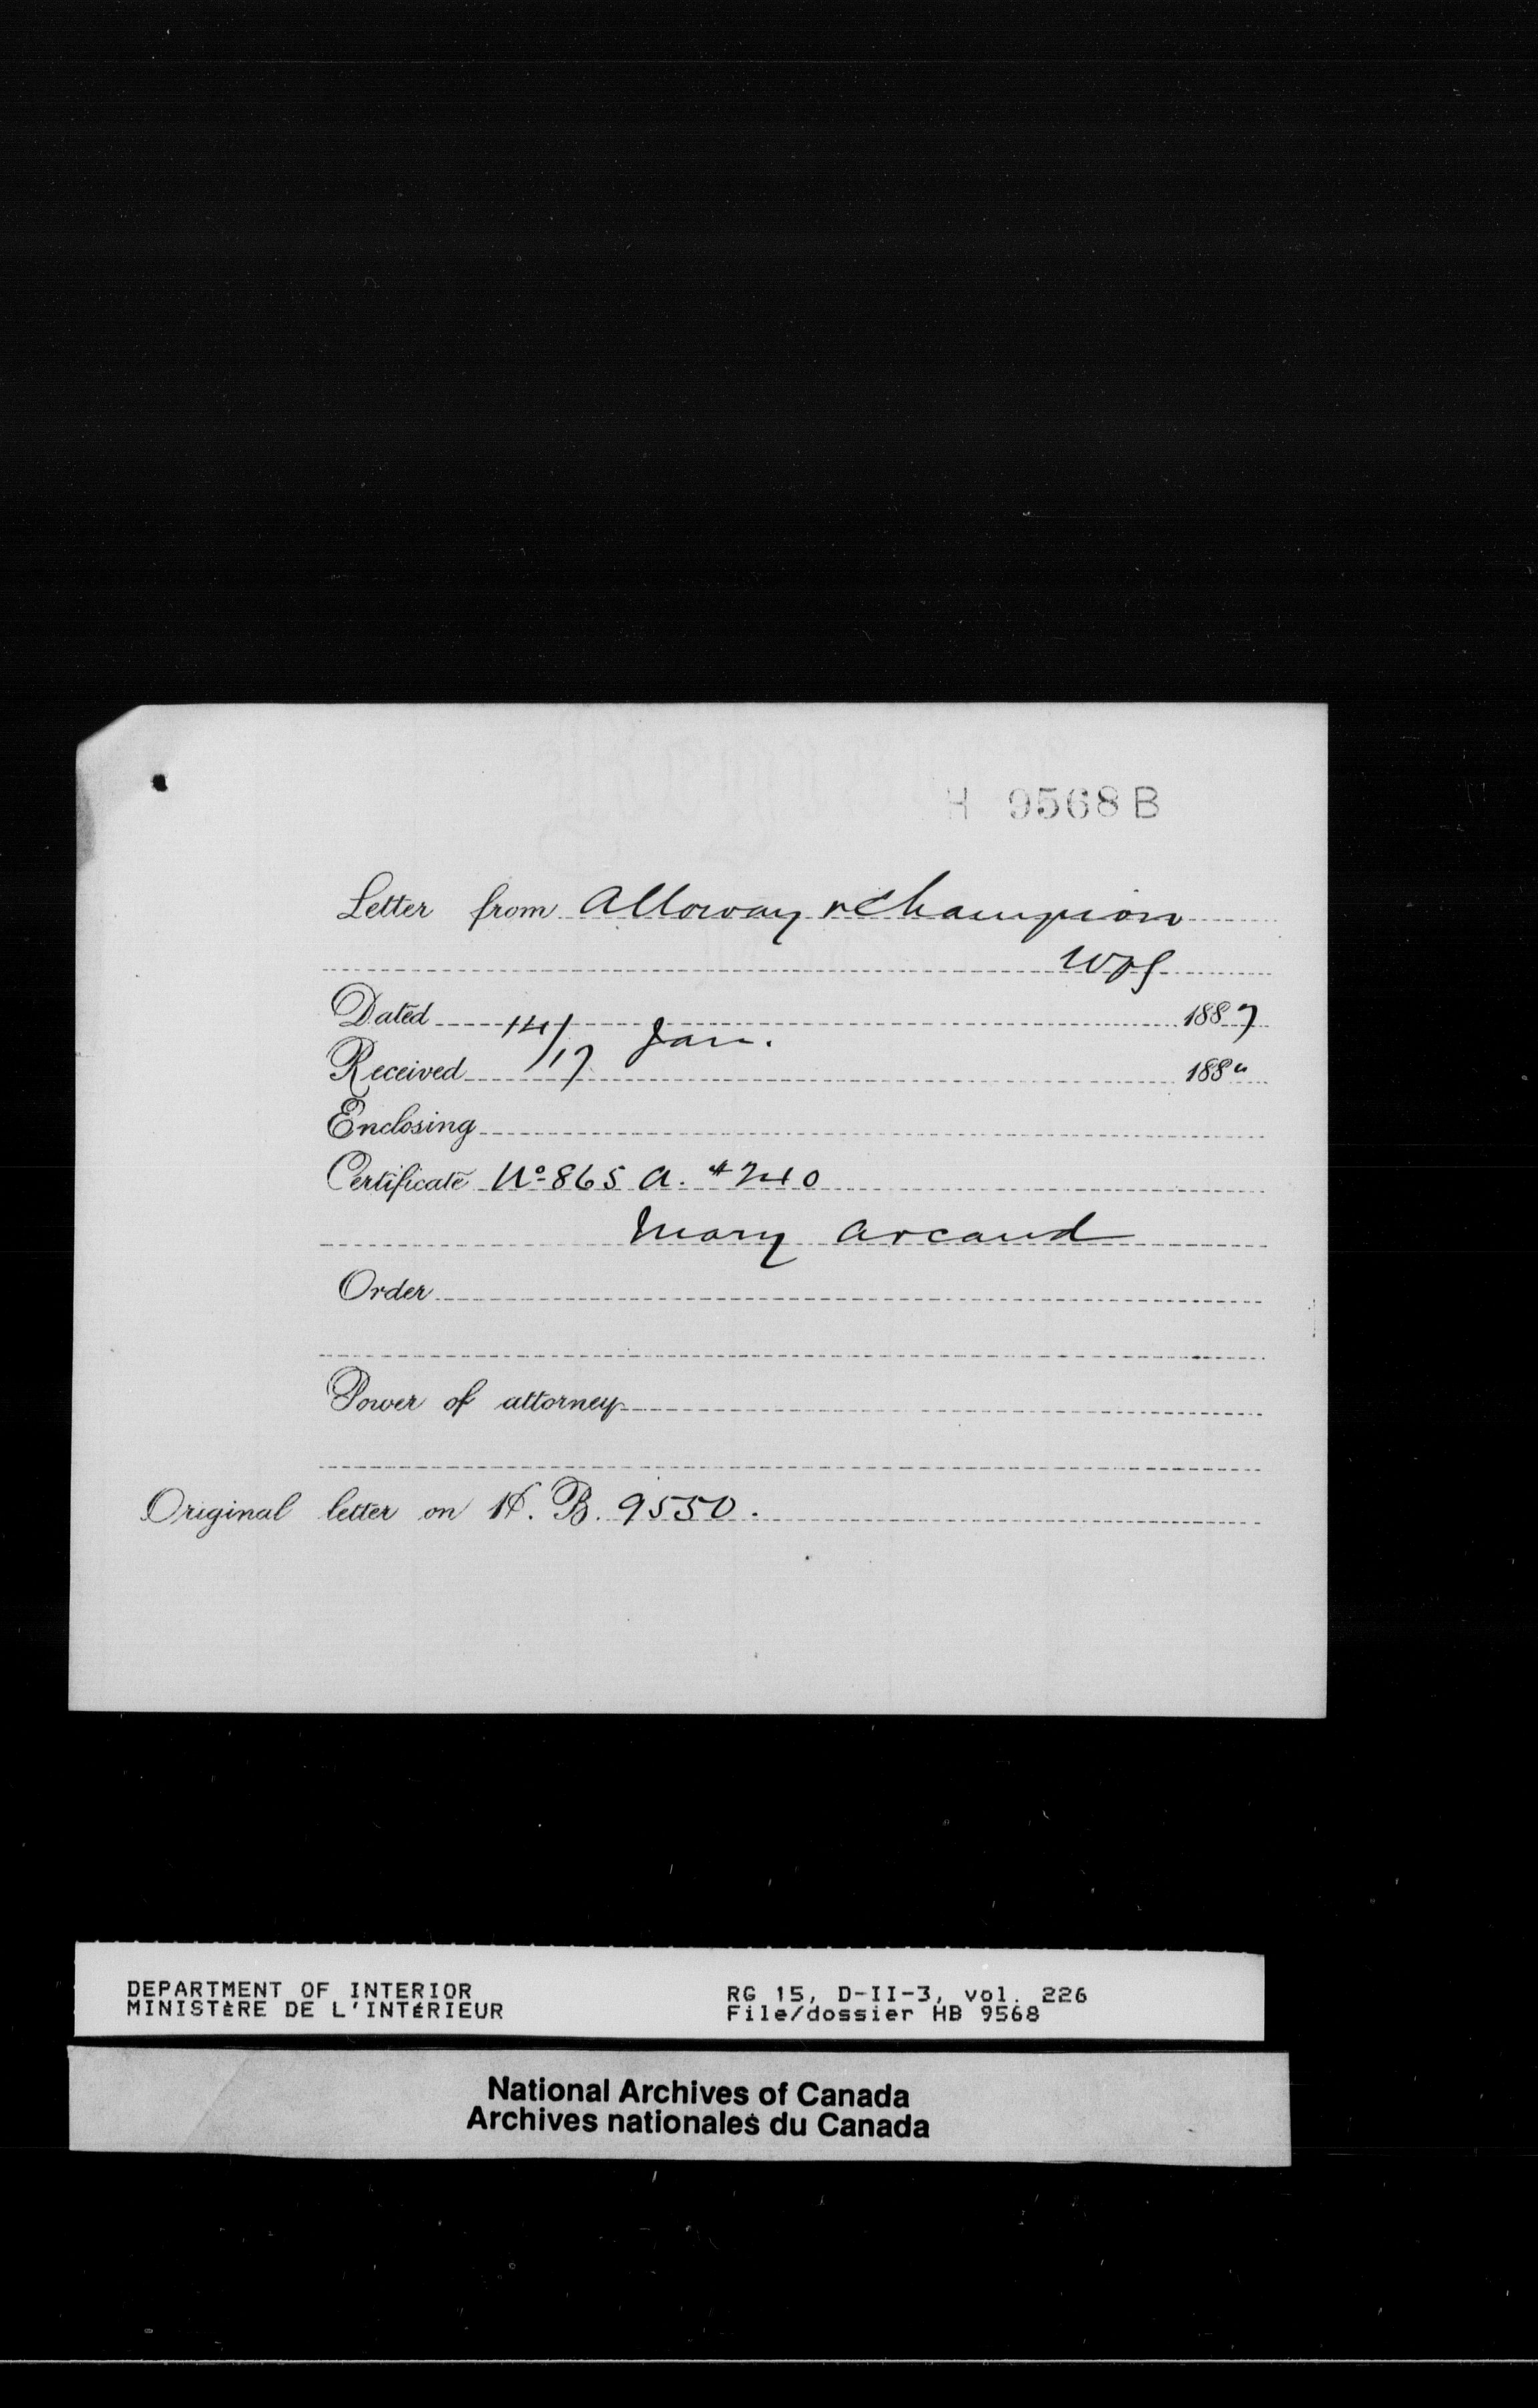 H 9568 B
Letter from Alloway & Champion
Wpg
Dated 14/ Jan. 1887
Received /17 188"
Enclosing
Certificate No 865 A. $240
Mary Arcand
Order
Power of attorney
Original letter on H. B. 9550.
DEPARTMENT OF INTERIOR
MINISTÈRE DE L'INTÉRIEUR
RG 15, D-II-3, vol. 226
File/dossier HB 9568
National Archives of Canada
Archives nationales du Canada